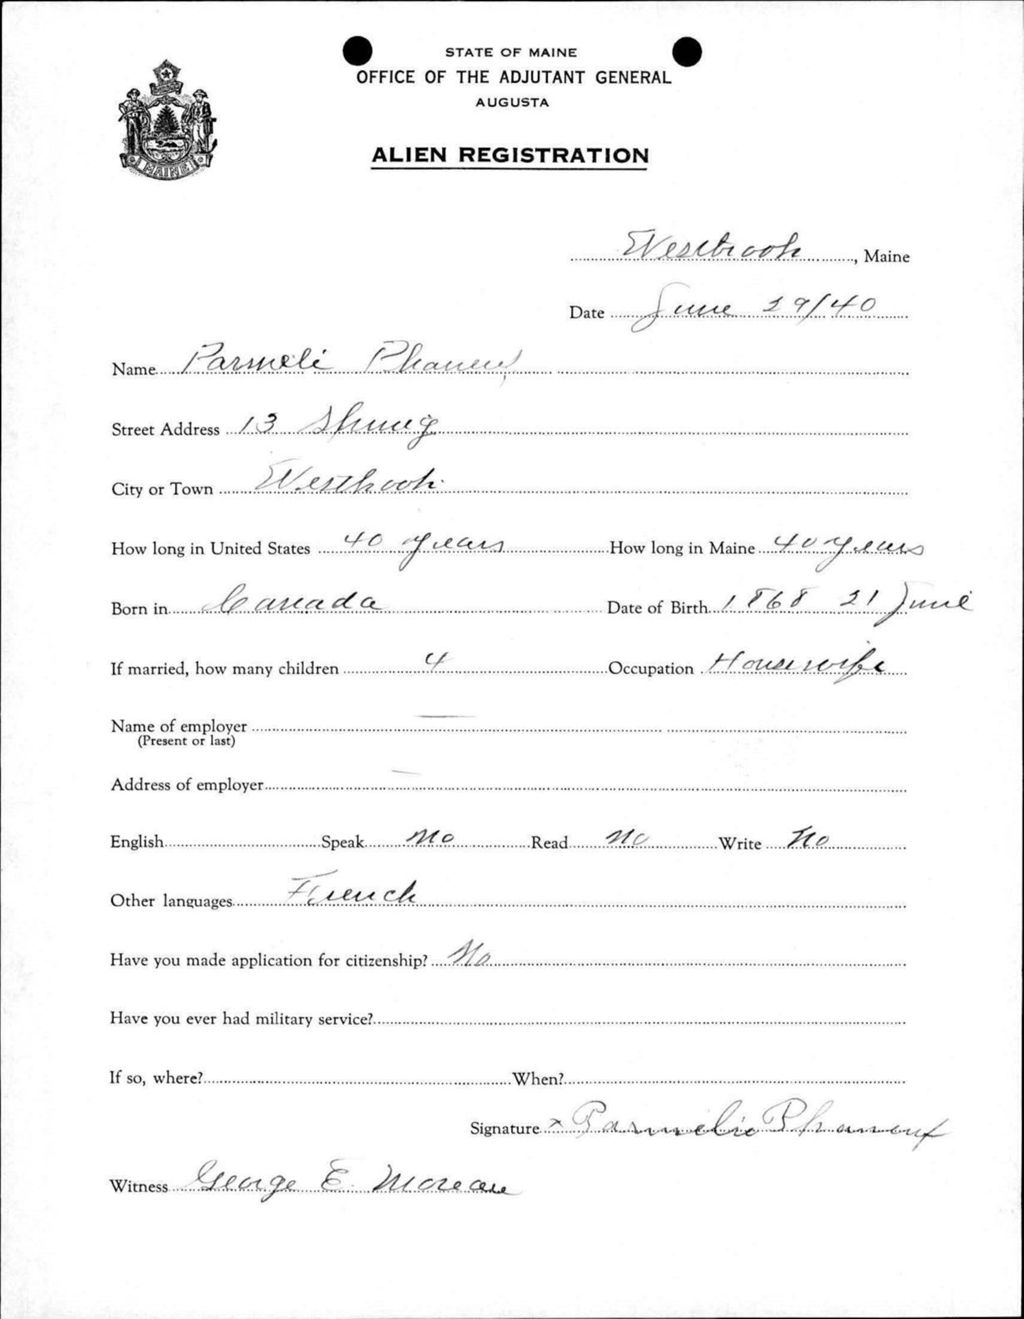 STATE OF MAINE
OFFICE OF THE ADJUTANT GENERAL
AUGUSTA
MAINE
ALIEN REGISTRATION
Westbrook, Maine
Date June 29/40
Name Parmeli Phaneuf
Street Address 13 Spring
City or Town Westbrook
How long in United States 40 years How long in Maine 40 years
Born in Canada Date of Birth 1868 21 June
If married, how many children 4 Occupation Housewife
Name of employer
(Present or last)
Address of employer
English Speak No Read No Write No
Other languages French
Have you made application for citizenship? No
Have you ever had military service?
If so, where? When?
Signature x Parmelie Phaneuf
Witness George E. Moreau